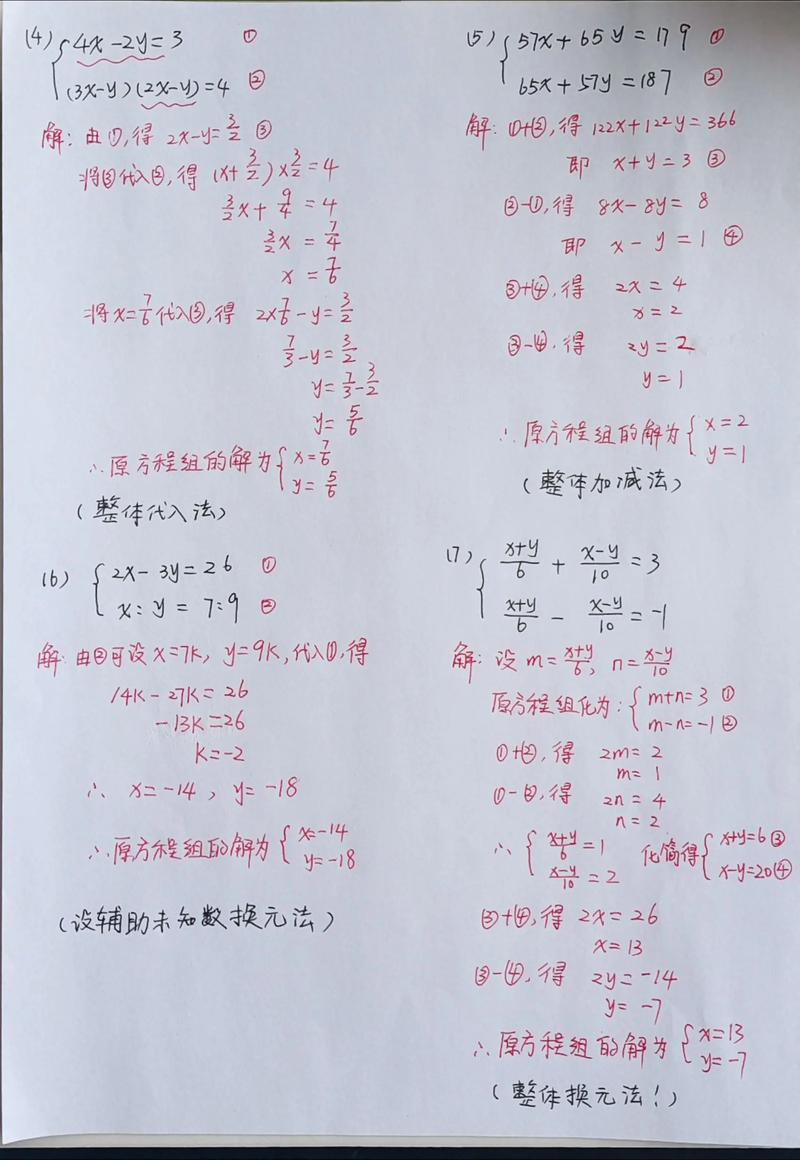 (4) { 4x-2y=3 ①
(3x-y)(2x-y)=4 ②
解: 由①,得 2x-y=3/2 ③
将③代入②,得 (x+3/2)×3/2=4
3/2x+9/4=4
3/2x=7/4
x=7/6
将x=7/6代入③,得 2×7/6-y=3/2
7/3-y=3/2
y=7/3-3/2
y=5/6
∴原方程组的解为{ x=7/6
y=5/6
(整体代入法)
(5) { 57x+65y=179 ①
65x+57y=187 ②
解: ①+②,得 122x+122y=366
即 x+y=3 ③
②-①,得 8x-8y=8
即 x-y=1 ④
③+④,得 2x=4
x=2
③-④,得 2y=2
y=1
∴原方程组的解为{ x=2
y=1
(整体加减法)
(6) { 2x-3y=26 ①
x:y=7:9 ②
解: 由②可设 x=7k, y=9k,代入①,得
14k-27k=26
-13k=26
k=-2
∴ x=-14, y=-18
∴原方程组的解为{ x=-14
y=-18
(设辅助未知数换元法)
(7) { (x+y)/6+(x-y)/10=3
(x+y)/6-(x-y)/10=-1
解: 设 m=(x+y)/6, n=(x-y)/10
原方程组化为:{ m+n=3 ①
m-n=-1 ②
①+②,得 2m=2
m=1
①-②,得 2n=4
n=2
∴ { (x+y)/6=1 化简得{ x+y=6 ③
(x-y)/10=2 x-y=20 ④
③+④,得 2x=26
x=13
③-④,得 2y=-14
y=-7
∴原方程组的解为{ x=13
y=-7
(整体换元法!)